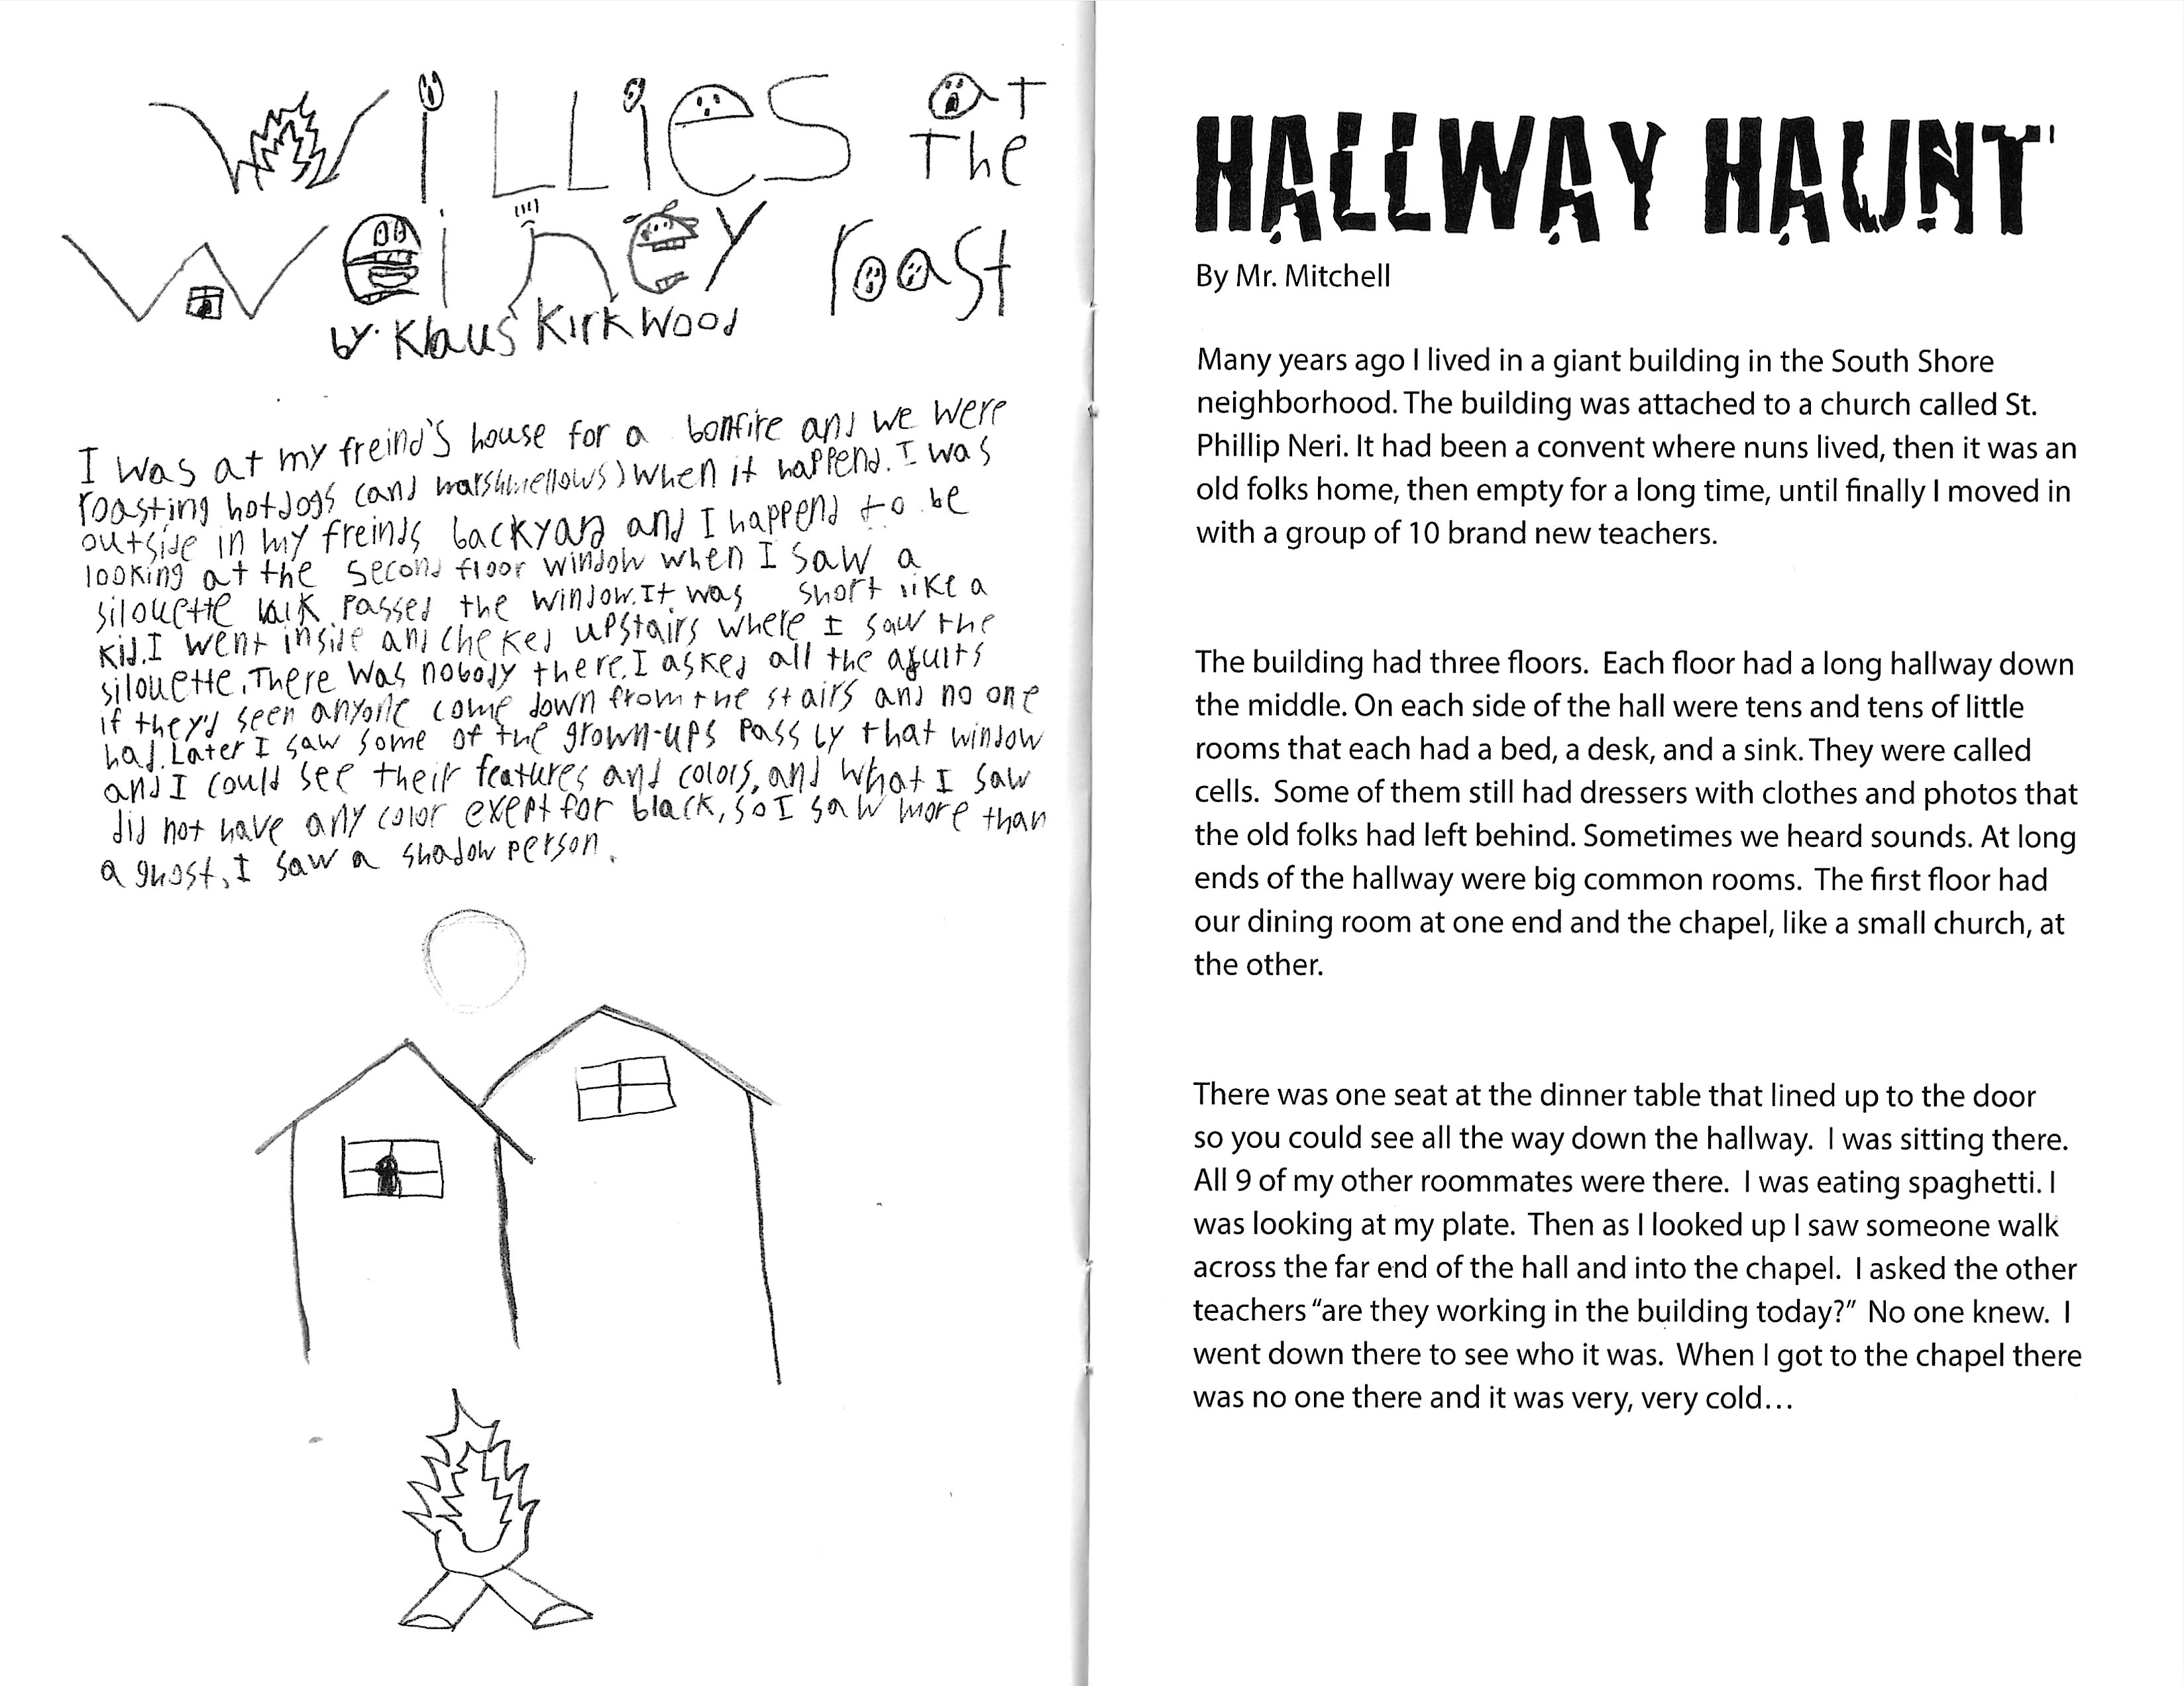 WiLLies at
The
Weiney roast
by: Klaus Kirkwood
I was at my freind's house for a bonfire and we were
roasting hotdogs (and marshmellows) when it happend. I was
outside in my freinds backyard and I happend to be
looking at the second floor window when I saw a
silouette walk passed the window. It was short like a
kid. I went inside and cheked upstairs where I saw the
silouette. There was nobody there. I asked all the adults
if they'd seen anyone come down from the stairs and no one
had. Later I saw some of the grown-ups pass by that window
and I could see their features and colors, and what I saw
did not have any color exept for black, so I saw more than
a ghost, I saw a shadow person.
HALLWAY HAUNT
By Mr. Mitchell
Many years ago I lived in a giant building in the South Shore
neighborhood. The building was attached to a church called St.
Phillip Neri. It had been a convent where nuns lived, then it was an
old folks home, then empty for a long time, until finally I moved in
with a group of 10 brand new teachers.
The building had three floors. Each floor had a long hallway down
the middle. On each side of the hall were tens and tens of little
rooms that each had a bed, a desk, and a sink. They were called
cells. Some of them still had dressers with clothes and photos that
the old folks had left behind. Sometimes we heard sounds. At long
ends of the hallway were big common rooms. The first floor had
our dining room at one end and the chapel, like a small church, at
the other.
There was one seat at the dinner table that lined up to the door
so you could see all the way down the hallway. I was sitting there.
All 9 of my other roommates were there. I was eating spaghetti. I
was looking at my plate. Then as I looked up I saw someone walk
across the far end of the hall and into the chapel. I asked the other
teachers “are they working in the building today?” No one knew. I
went down there to see who it was. When I got to the chapel there
was no one there and it was very, very cold…